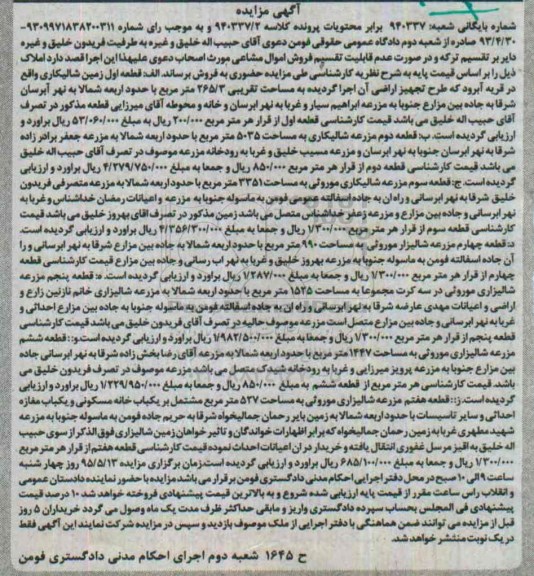 آگهی مزایده
شماره بایگانی شعبه: ۹۴۰۳۳۷ برابر محتویات پرونده کلاسه ۹۴۰۳۳۷/۲ و به موجب رای شماره ۹۳۰۹۹۷۱۸۳۸۲۰۰۳۱۱-
۹۳/۴/۳۰ صادره از شعبه دوم دادگاه عمومی حقوقی فومن دعوی آقای حبیب اله خلیق و غیره به طرفیت فریدون خلیق و غیره
دایر بر تقسیم ترکه و در صورت عدم قابلیت تقسیم فروش اموال مشاعی مورث اصحاب دعوی علیهذا این اجرا قصد دارد املاک
ذیل را بر اساس قیمت پایه به شرح نظریه کارشناسی طی مزایده حضوری به فروش برساند. الف: قطعه اول زمین شالیکاری واقع
در قریه آبرود که طرح تجهیز اراضی آن اجرا گردیده به مساحت تقریبی ۲۶۵/۳ متر مربع با حدود اربعه شمالا به نهر آبرسان
شرقا به جاده بین مزارع جنوبا به مزرعه ابراهیم سیار و غربا به نهر ابرسان و خانه و محوطه آقای میرزایی قطعه مذکور در تصرف
آقای حبیب اله خلیق می باشد قیمت کارشناسی قطعه اول از قرار هر متر مربع ۲۰۰/۰۰۰ ریال به مبلغ ۵۳/۰۶۰/۰۰۰ ریال براورد و
ارزیابی گردیده است. ب: قطعه دوم مزرعه شالیکاری به مساحت ۵۰۳۵ متر مربع با حدود اربعه شمالا به مزرعه جعفر برادر زاده
شرقا به نهر ابرسان جنوبا به نهر ابرسان و مزرعه مسیب خلیق و غربا به رودخانه مزرعه موصوف در تصرف آقای حبیب اله خلیق
می باشد قیمت کارشناسی قطعه دوم از قرار هر متر مربع ۸۵۰/۰۰۰ ریال و جمعا به مبلغ ۴/۲۷۹/۷۵۰/۰۰۰ ریال براورد و ارزیابی
گردیده است. ج: قطعه سوم مزرعه شالیکاری موروثی به مساحت ۳۳۵۱ متر مربع با حدود اربعه شمالا به مزرعه متصرفی فریدون
خلیق شرقا به نهر ابرسانی و راه ان به جاده اسفالته عمومی فومن به ماسوله جنوبا به مزرعه و اعیانات رمضان خداشناس و غربا به
نهر ابرسانی و جاده بین مزارع و مزرعه جعفر شناس متصل می باشد زمین مذکور در تصرف اقای بهروز خلیق می باشد قیمت
کارشناسی قطعه سوم از قرار هر متر مربع ۱/۳۰۰/۰۰۰ ریال و جمعا به مبلغ ۴/۳۵۶/۳۰۰/۰۰۰ ریال براورد و ارزیابی گردیده است.
د: قطعه چهارم مزرعه شالیزار موروثی به مساحت ۹۹۰ متر مربع با حدود اربعه شمالا به جاده بین مزارع شرقا به نهر ابرسانی و را
آن جاده اسفالته فومن به ماسوله جنوبا به مزرعه بهروز خلیق و غربا به نهر اب رسانی و جاده بین مزارع قیمت کارشناسی قطعه
چهارم از قرار هر متر مربع ۱/۳۰۰/۰۰۰ ریال و جمعا به مبلغ ۱/۲۸۷/۰۰۰ ریال براورد و ارزیابی گردیده است. ه: قطعه پنجم مزرعه
شالیزاری موروثی در سه کرت مجموعا به مساحت ۱۵۲۵ متر مربع با حدود اربعه شمالا به مزرعه شالیزاری خانم نازنین زارع و
اراضی و اعیانات مهدی عارضه شرقا به نهر ابرسانی و راه ان به جاده اسفالته فومن به ماسوله جنوبا به جاده بین مزارع احداثی و
غربا به نهر ابرسانی و جاده بین مزارع متصل است مزرعه موصوف حالیه در تصرف آقای فریدون خلیق می باشد قیمت کارشناسی
قطعه پنجم از قرار هر متر مربع ۱/۳۰۰/۰۰۰ ریال و جمعا به مبلغ ۱/۹۸۲/۵۰۰/۰۰۰ ریال براورد و ارزیابی گردیده است. و: قطعه ششم
مزرعه شالیزاری موروثی به مساحت ۱۴۴۷ متر مربع با حدود اربعه شمالا به مزرعه آقای رضا بخش زاده شرقا به نهر ابرسانی جاده
بین مزارع جنوبا به مزرعه پرویز میرزایی و غربا به رودخانه متصل می باشد مزرعه موصوف در تصرف فریدون خلیق می
باشد. قیمت کارشناسی هر متر مربع از قطعه ششم به مبلغ ۸۵۰/۰۰۰ ریال و جمعا به مبلغ ۱/۲۲۹/۹۵۰/۰۰۰ ریال براورد و ارزیابی
گردیده است. ز: قطعه هفتم مزرعه شالیزاری موروثی به مساحت ۵۲۷ متر مربع مشتمل بر یکباب خانه مسکونی و یکباب مغازه
احداثی و سایر تاسیسات با حدود اربعه شمالا به زمین بایر رحمان جمالیخواه شرقا به حریم جاده فومن به ماسوله جنوبا به مزرعه
شهید مطهری غربا به زمین رحمان جمالیخواه که برابر اظهارات خواندگان و تاثیر خواهان زمین شالیزاری فوق الذکر از سوی حبیب
اله خلیق به اقیز مرسل غفوری انتقال یافته و خریدار در ان اعیانات احداث نموده قیمت کارشناسی قطعه هفتم از قرار هر متر مربع
۱/۳۰۰/۰۰۰ ریال و جمعا به مبلغ ۶۸۵/۱۰۰/۰۰۰ ریال براورد و ارزیابی گردیده است. زمان برگزاری مزایده ۹۵/۵/۱۳ روز چهار شنبه
ساعت ۹ الی ۱۰ صبح در محل دفتر اجرایی احکام مدنی دادگستری فومن برقرار می باشد مزایده با حضور نماینده دادستان عمومی
و انقلاب راس ساعت مقرر از قیمت پایه ارزیابی شده شروع و به بالاترین قیمت پیشنهادی فروخته خواهد شد. ۱۰ درصد قیمت
پیشنهادی فی المجلس بحساب سپرده دادگستری واریز و مابقی حداکثر ظرف مدت یک ماه وصول می گردد خریداران ۵ روز
قبل از مزایده می توانند ضمن هماهنگی با دفتر اجرایی از ملک موصوف بازدید و سپس در مزایده شرکت نمایند این آگهی فقط
در یک نوبت منتشر خواهد شد.
ح ۱۶۴۵ شعبه دوم اجرای احکام مدنی دادگستری فومن